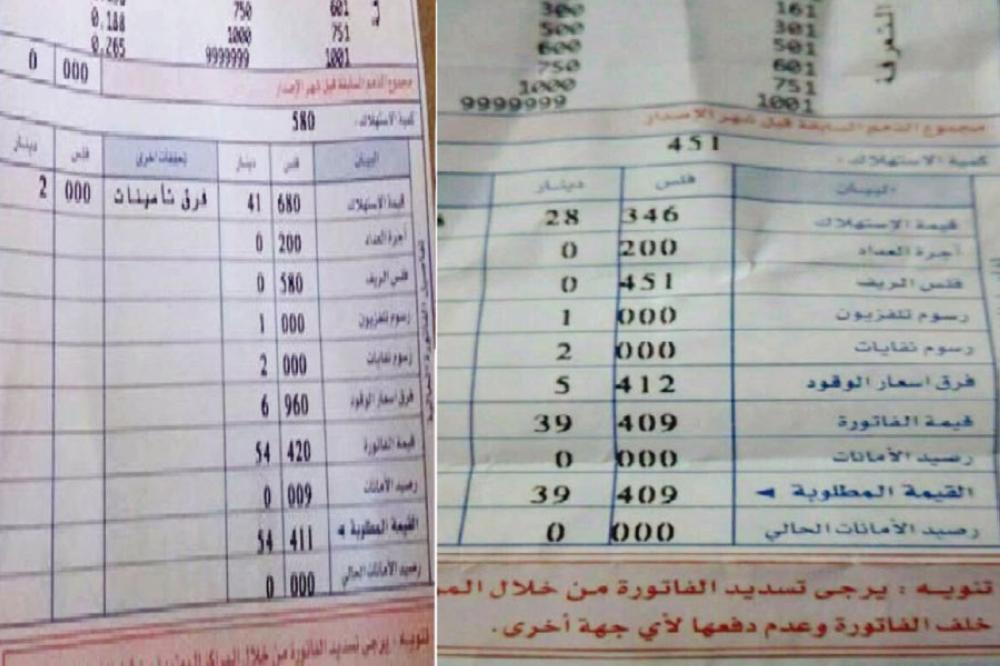 0.188 750 601
0.265 1000 751
9999999 1001
0 000 مجموع الذمم السابقة قبل شهر الإصدار
كمية الاستهلاك . 580
البيان فلس دينار تحققات اخرى فلس دينار
قيمة الاستهلاك 680 41 فرق تأمينات 000 2
أجرة العداد 200 0
فلس الريف 580 0
رسوم تلفزيون 000 1
رسوم نفايات 000 2
فرق اسعار الوقود 960 6
قيمة الفاتورة 420 54
رصيد الأمانات 009 0
القيمة المطلوبة ◄ 411 54
رصيد الأمانات الحالي 000 0
تنويه : يرجى تسديد الفاتورة من خلال
300 161
500 301
600 501
750 601
1000 751
9999999 1001
مجموع الذمم السابقة قبل شهر الاصدار
كمية الاستهلاك . 451
البيان فلس دينار
قيمة الاستهلاك 346 28
أجرة العداد 200 0
فلس الريف 451 0
رسوم تلفزيون 000 1
رسوم نفايات 000 2
فرق اسعار الوقود 412 5
قيمة الفاتورة 409 39
رصيد الأمانات 000 0
القيمة المطلوبة ◄ 409 39
رصيد الأمانات الحالي 000 0
تنويه : يرجى تسديد الفاتورة من خلال المر
خلف الفاتورة وعدم دفعها لأي جهة أخرى .